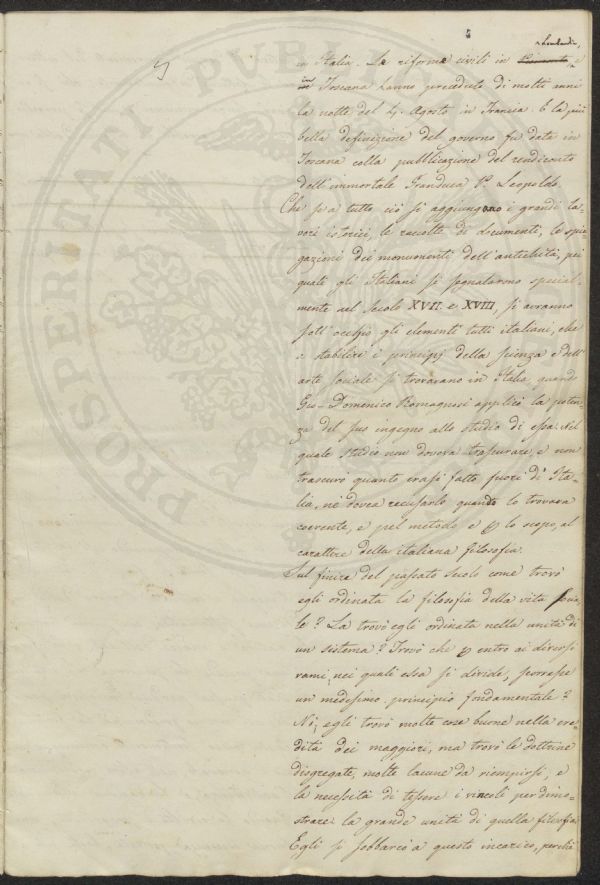 5
Lombardia,
in Italia. Le riforme civili in Piemonte, e
in Toscana hanno preceduto di molti anni
la notte del 4. Agosto in Francia. E la più
bella definizione del governo fu data in
Toscana colla pubblicazione del rendiconto
dell'immortale Granduca P. Leopoldo.
Che se a tutto ciò si aggiungono i grandi la-
vori istorici, le raccolte di documenti, le spie
gazioni dei monumenti dell'antichità, pei
quali gli Italiani si segnalarono special-
mente nel secolo XVII. e XVIII, si avranno
sott'occhio gli elementi tutti italiani, che
a stabilire i principj della scienza e dell'
arte sociale si trovarano in Italia, quando
Gio- Domenico Romagnosi applicò la poten-
za del suo ingegno allo studio di essa. Nel
quale studio non doveva trascurare, e non
trascurò quanto erasi fatto fuori d'Ita-
lia, nè dovea recusarlo quando lo trovava
coerente, e pel metodo e p lo scopo, al
carattere della italiana filosofia.
Sul finire del passato secolo come trovò
egli ordinata la filosofia della vita socia-
le? La trovò egli ordinata nella unità di
un sistema? Trovò che p entro ai diversi
rami, nei quali essa si divide, scorresse
un medesimo principio fondamentale?
Nò; egli trovò molte cose buone nella ere-
dità dei maggiori, ma trovò le dottrine
disgregate, molte lacune da riempirsi, e
la necessità di tessere i vincoli per dimo-
strare la grande unità di quella filosofia.
Egli si sobbarcò a questo incarico, perchè
PROSPERITATI PUBLICAE